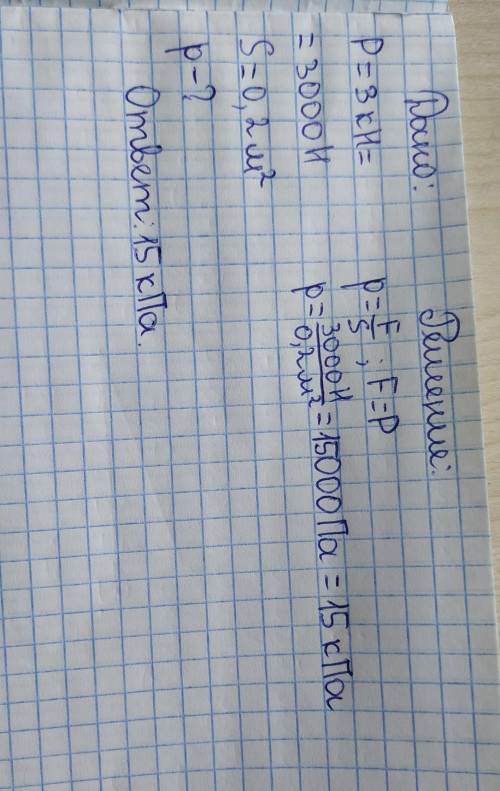 Дано:
P = 3 кН =
= 3000 Н
S = 0,2 м²
p - ?
Решение:
p = F/S ; F = P
p = 3000 Н/0,2 м² = 15000 Па = 15 кПа
Ответ: 15 кПа.